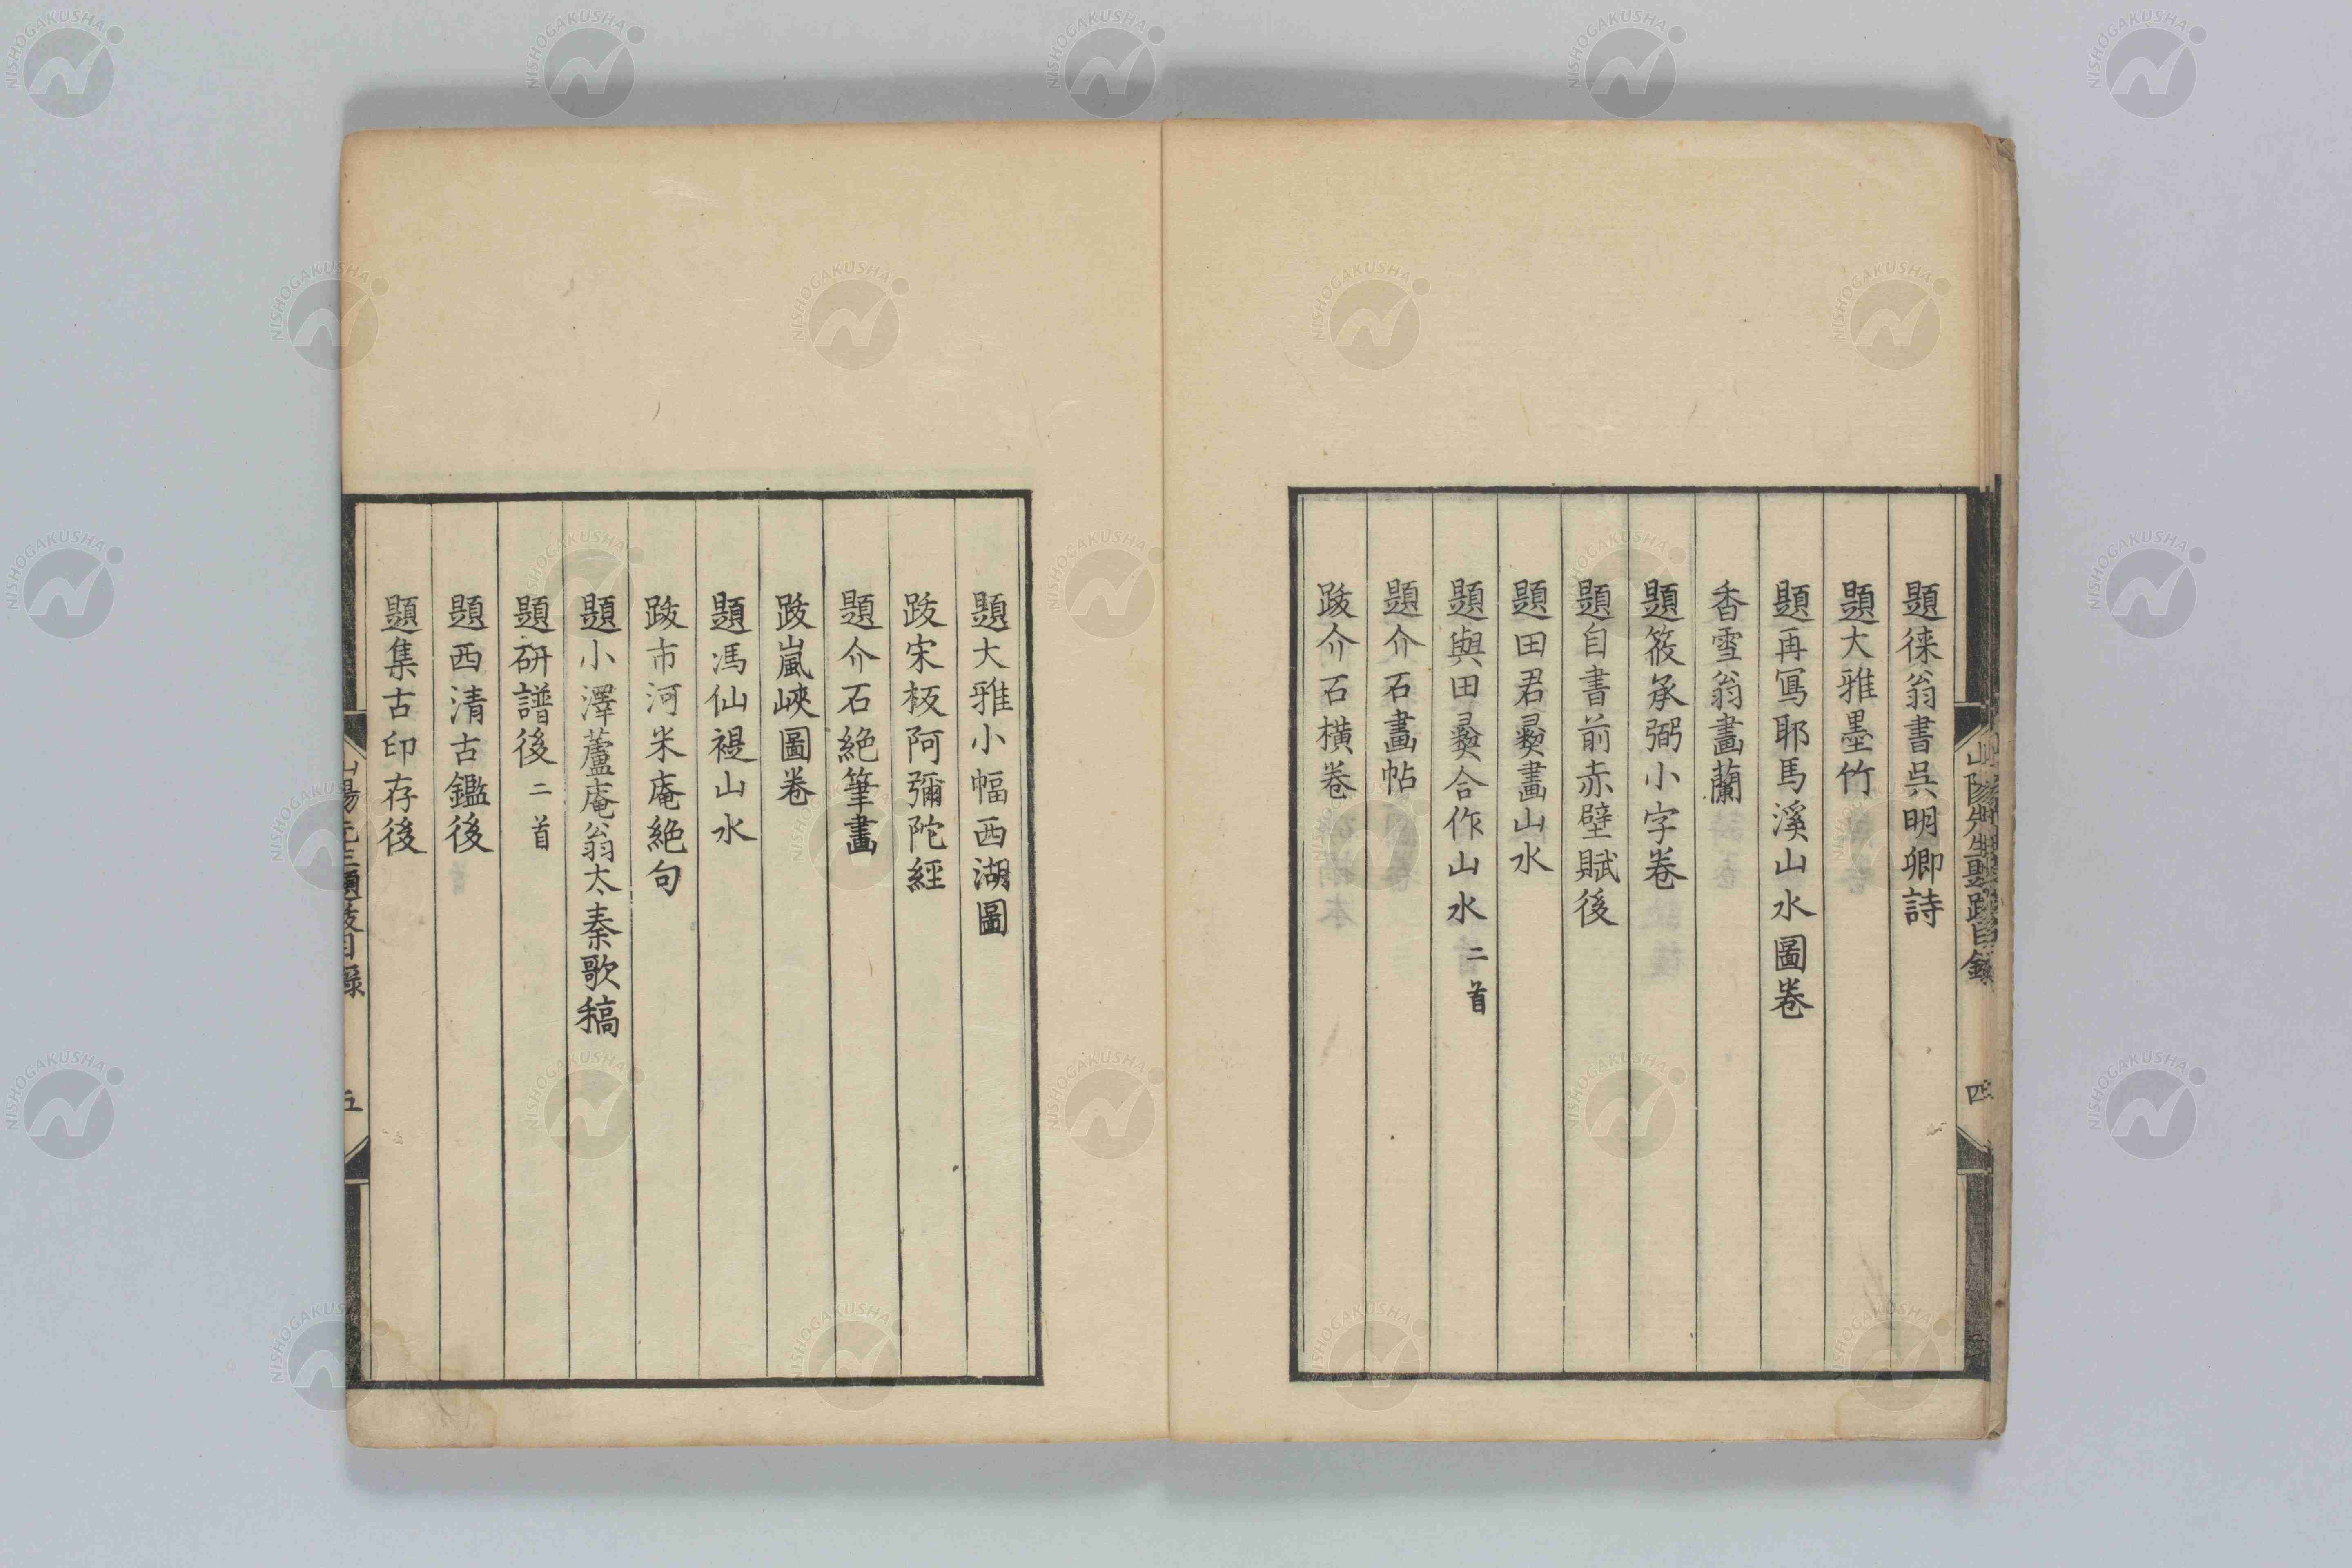 題徠翁書呉明卿詩
題大雅墨竹
題再寫耶馬溪山水圖卷
香雪翁畫蘭
題筱承弼小字卷
題自書前赤壁賦後
題田君彛畫山水
題與田彛合作山水 二首
題介石畫帖
跋介石橫卷
山陽先生題跋目録
四
題大雅小幅西湖圖
跋宋板阿彌陀經
題介石絶筆畫
跋嵐峽圖卷
題馮仙禔山水
跋市河米庵絶句
題小澤蘆庵翁太秦歌稿
題研譜後 二首
題西清古鑑後
題集古印存後
山陽先生題跋目録
五
NISHOGAKUSHA